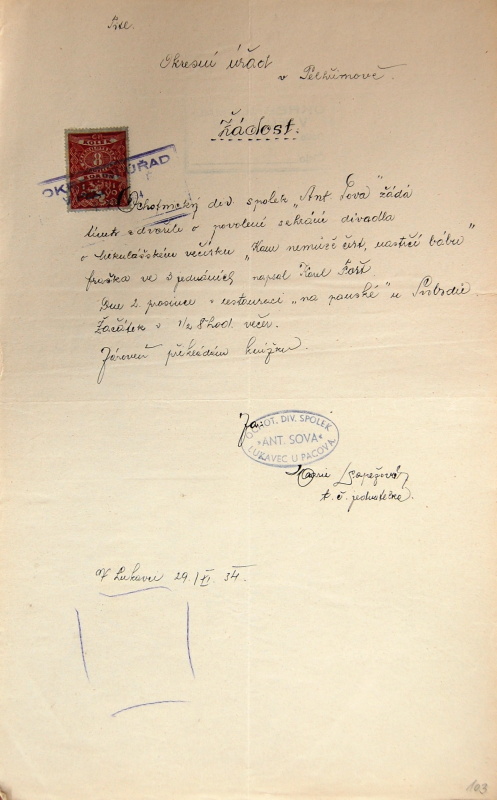 Okresní úřad
v Pelhřimově.
Žádost.
KOLEK
8
Ochotnický div. spolek "Ant. Sova" žádá
tímto zdvořile o povolení sehrání divadla
o Mikulášském večírku "Kam nemůže čert, nastrčí bábu"
fraška ve 3 jednáních, napsal Karel Fořt
Dne 2. prosince v restauraci "na panské" u Svobodů
Začátek v 1/2 8 hod. večer.
Zároveň předkládám knížku.
Za:
OCHOT. DIV. SPOLEK
»ANT. SOVA«
LUKAVEC U PACOVA
Marie
t. č. jednatelka.
V Lukavci 29./XI. 34.
103